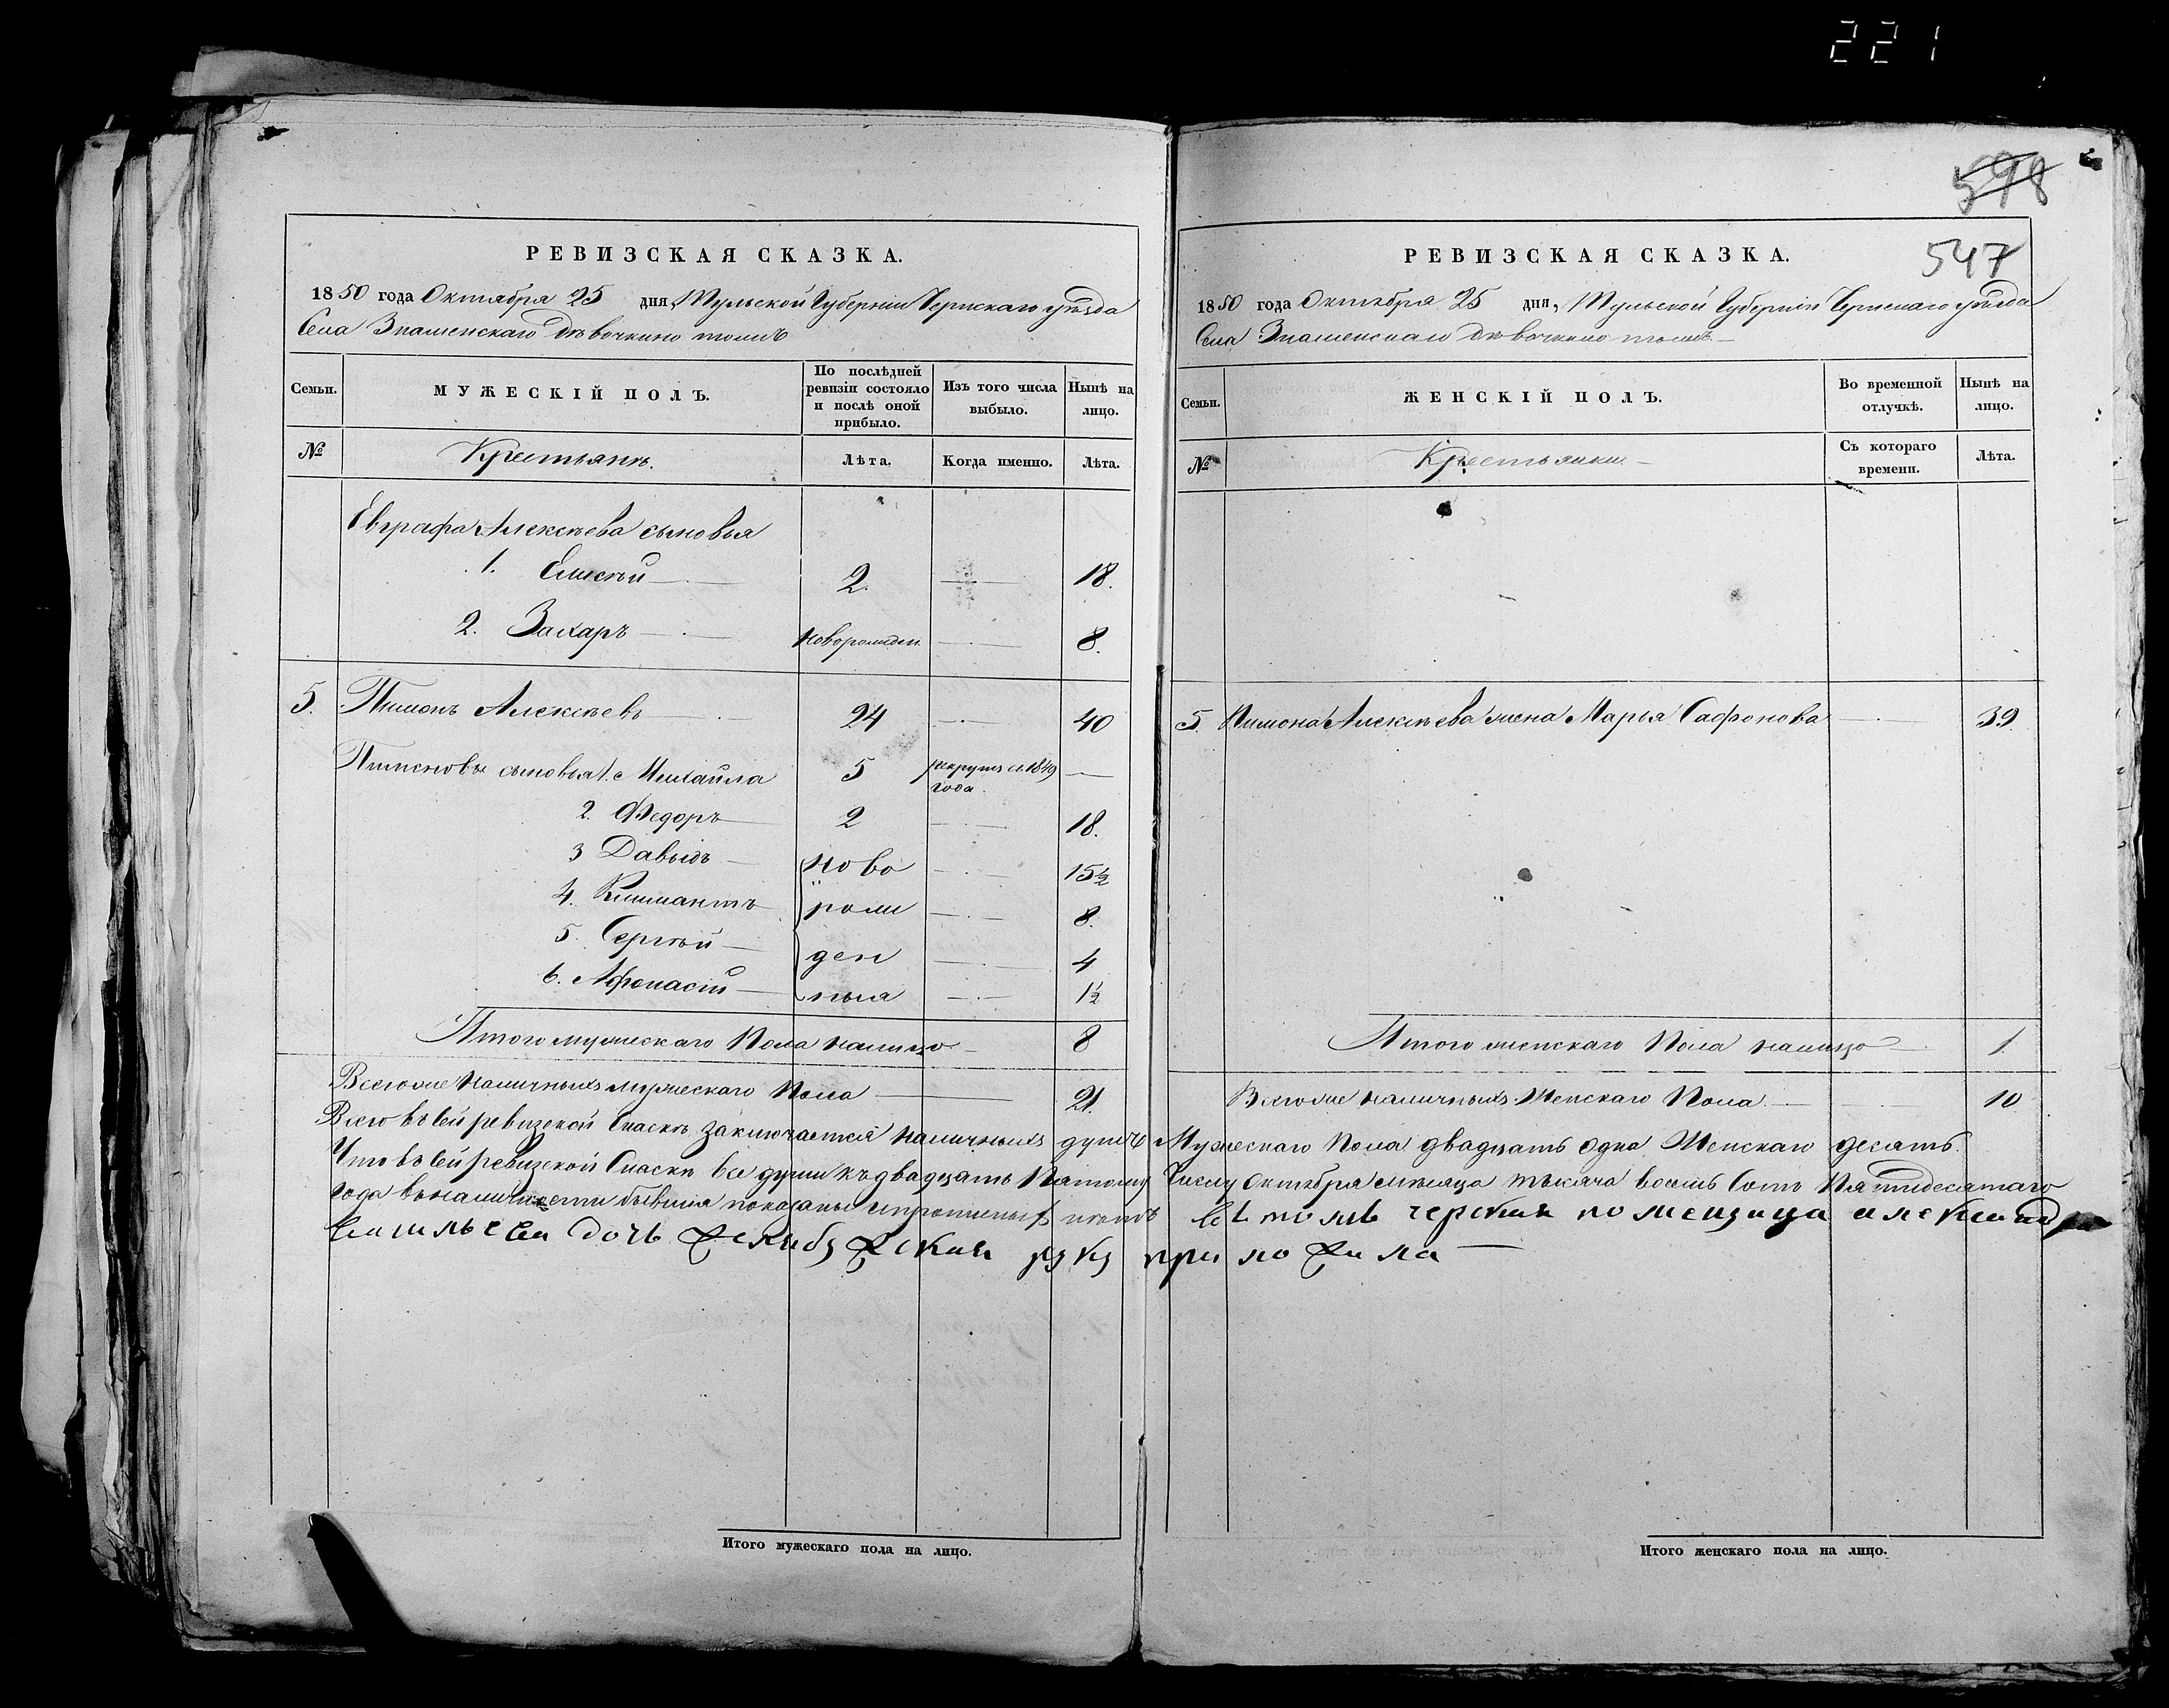 221
598
547
РЕВИЗСКАЯ СКАЗКА.
1850 года Октября 25 дня, Тульской Губерніи Чернскаго уѣзда
Села Знаменскаго Дѣвочкино тожъ
Семьи.
МУЖЕСКІЙ ПОЛЪ.
По послѣдней ревизіи состояло и послѣ оной прибыло.
Изъ того числа выбыло.
Нынѣ на лицо.
№
Крестьянъ.
Лѣта.
Когда именно.
Лѣта.
Евграфа Алексѣева сыновья
1. Елисѣй 2. 18.
2. Захаръ новорожден. 8.
5. Пимонъ Алексѣевъ 24 40
Пименовы сыновья 1. Михайла 5 рекрут. с. 1849 года.
2. Федоръ 2 18.
3 Давыдъ ново 15½
4. Климантъ рож 8.
5. Сергѣй ден 4
6. Афонасій ныя 1½
Итого мужескаго Пола налицо 8
Всего же Наличныхъ мужескаго Пола 21.
РЕВИЗСКАЯ СКАЗКА.
1850 года Октября 25 дня, Тульской Губерніи Чернскаго уѣзда
Села Знаменскаго Дѣвочкино тожъ
Семьи.
ЖЕНСКІЙ ПОЛЪ.
Во временной отлучкѣ.
Нынѣ на лицо.
№
Крестьянки
Съ котораго времени.
Лѣта.
5. Пимона Алексѣева жена Марья Сафонова 39.
Итого женскаго Пола налицо 1.
Всего же наличныхъ Женскаго Пола 10
Всего въ сей ревизской Скаскѣ заключается наличныхъ душъ Мужескаго Пола двадцать одна, Женскаго десять.
Что въ сей ревизской Скаскѣ все души къ двадцать Пятому Числу Октября мѣсяца тысяча восемь Сотъ Пятидесятаго
года въ наличности бывшія показаны и прописныхъ нѣтъ в томъ чернская помещица александра
руку приложила
Итого мужескаго пола на лицо.
Итого женскаго пола на лицо.